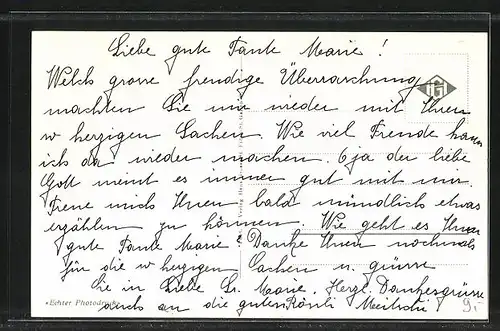 Liebe gute Tante Marie!
Welch grosse freudige Überraschung
machten Sie mir wieder mit Ihren
w herzigen Sachen. Wie viel Freude kann
ich da wieder machen. O ja der liebe
Gott meint es immer gut mit mir.
Freue mich Ihnen bald mündlich etwas
erzählen zu können. Wie geht es Ihnen
gute Tante Marie? Danke Ihnen nochmals
für die w herzigen Sachen u. grüsse
Sie in Liebe Sr. Marie. Herzl. Dankesgrüsse
auch an die guten Rösli
Echter Photodruck
9.-